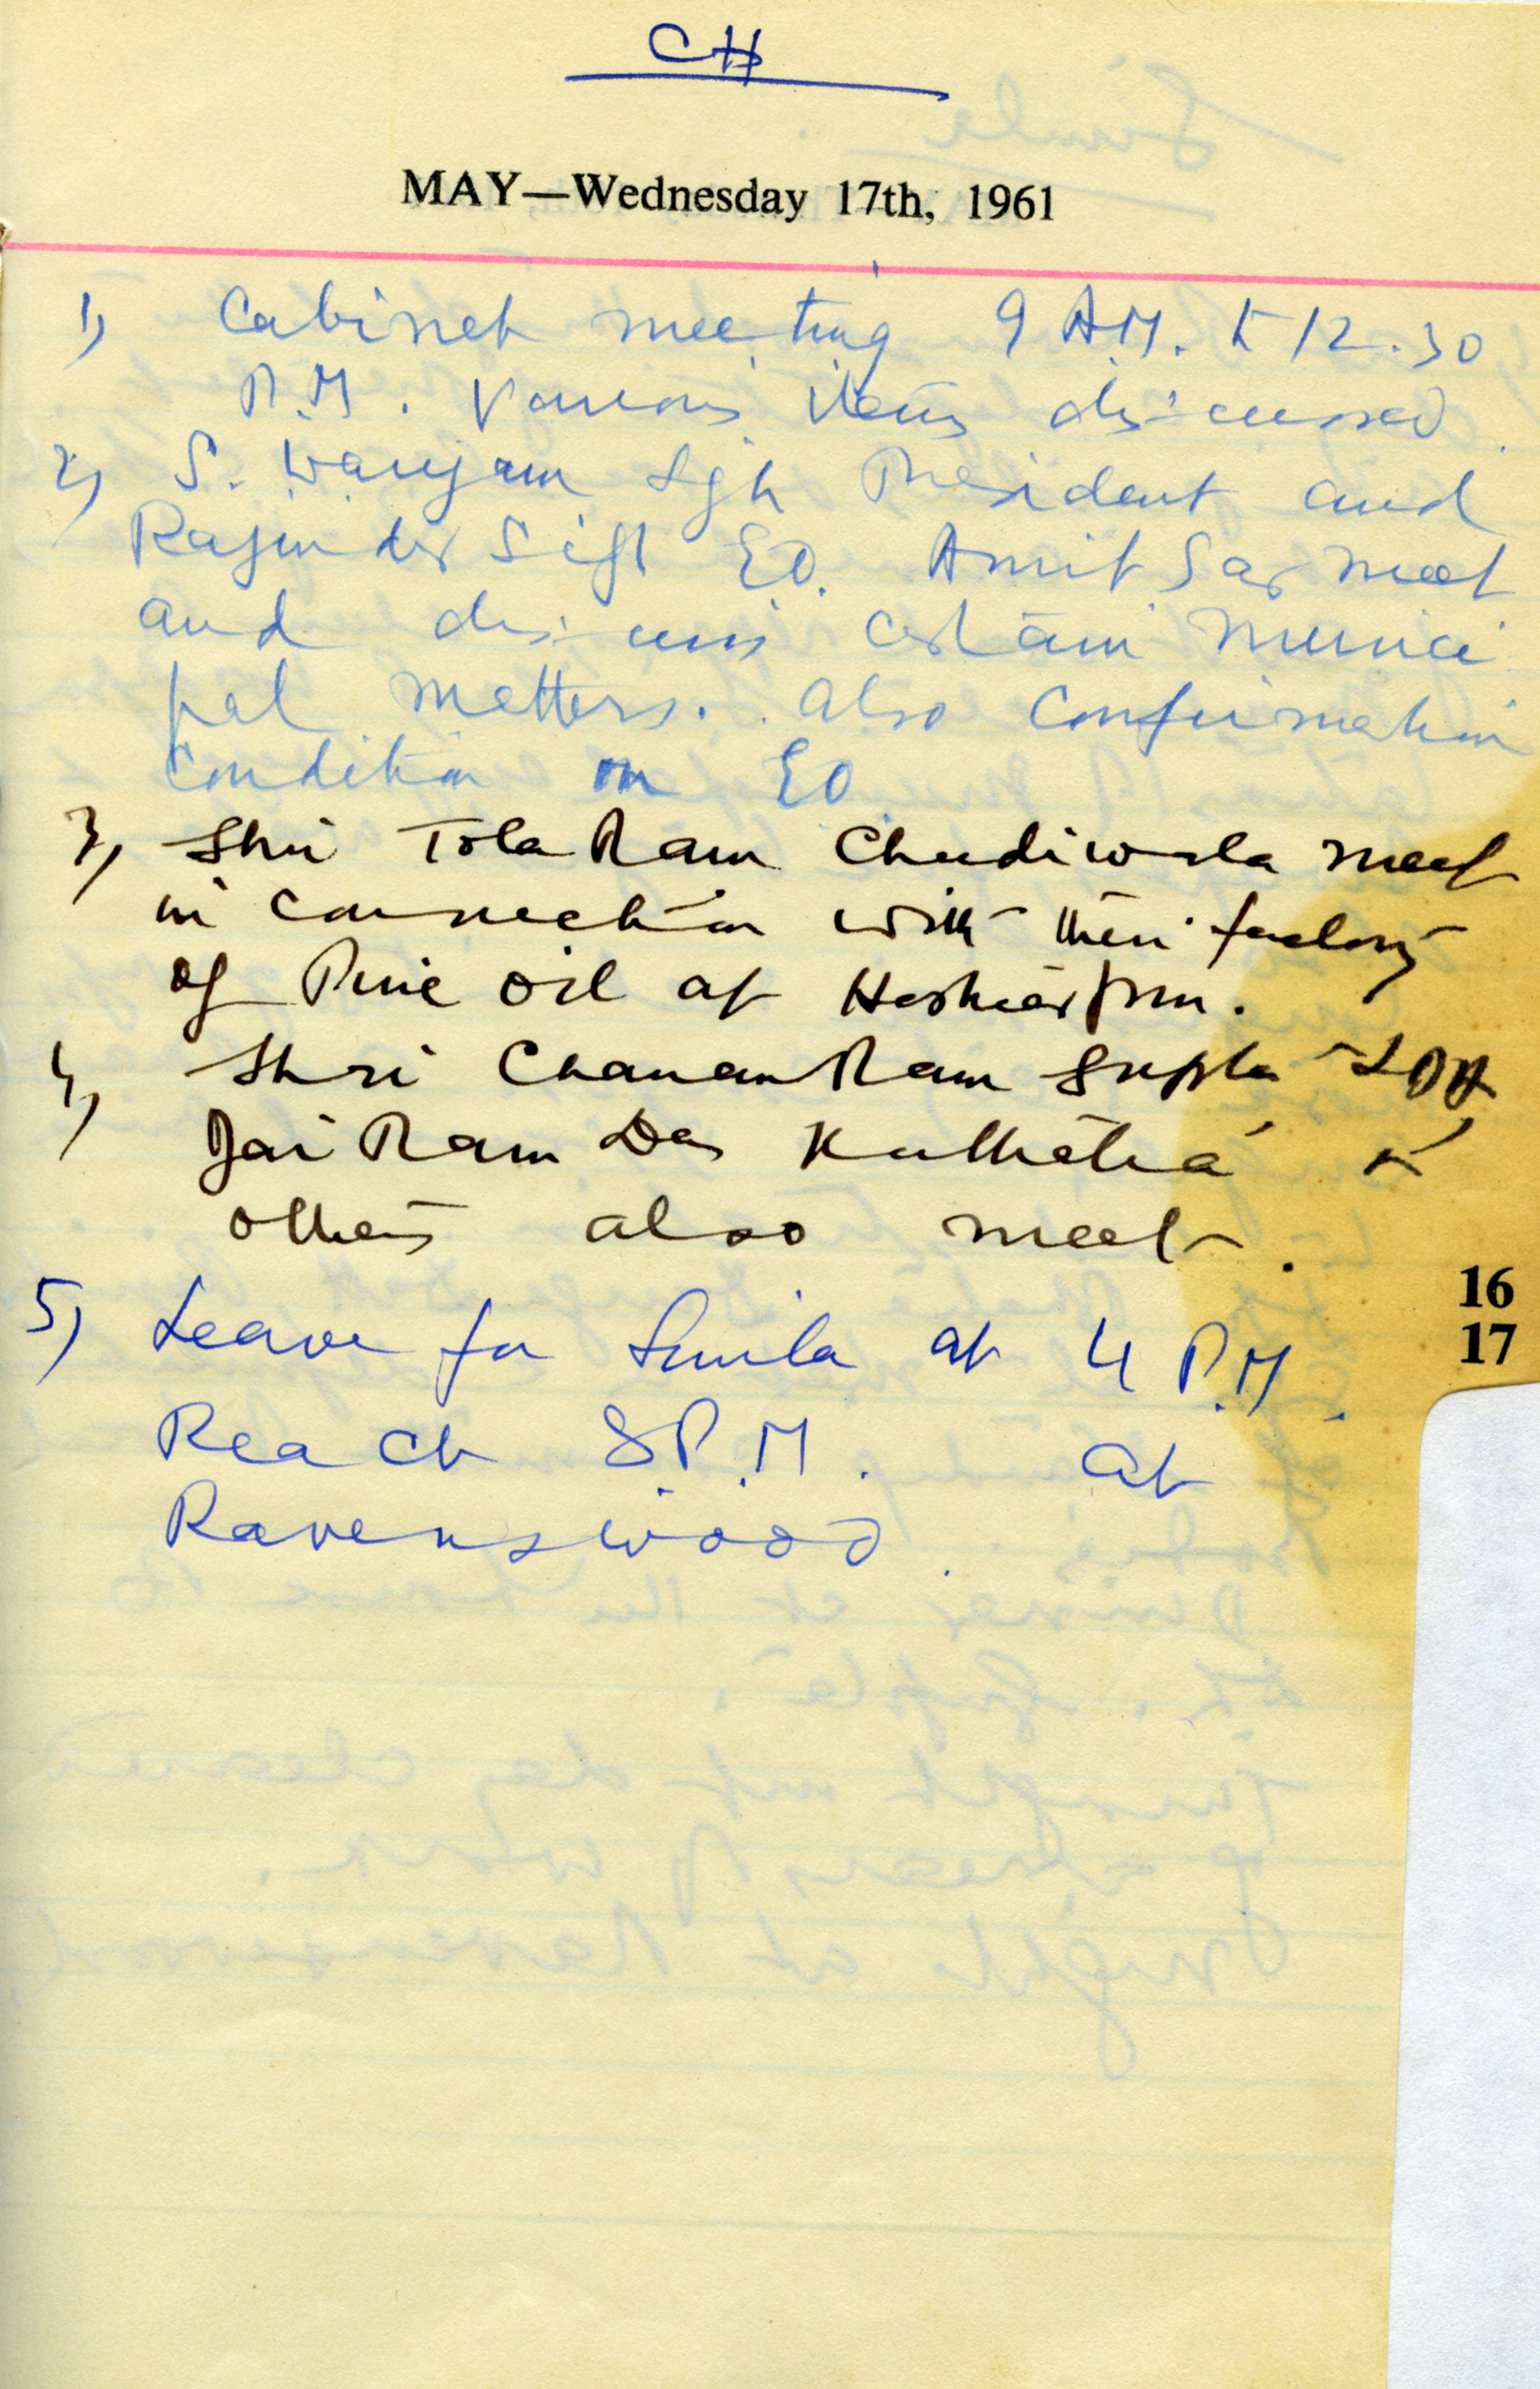 CH
MAY—Wednesday 17th, 1961
1) Cabinet meeting 9 A.M. to 12.30
P.M. Various items discussed.
2) S. Waryam Sgh President and
Rajinder Sigh EO. Amritsar meet
and discuss certain Munici
pal matters. also Confirmation
Condition on EO
3) Shri Tola Ram Chudiwala meet
in connection with their factory
of Pine oil at Hoshiarpur.
4) Shri Chanan Ram Gupta
Jai Ram Das &
others also meet.
16
17
5) Leave for Simla at 4 P.M.
Reach 8 P.M. at
Ravenswood.